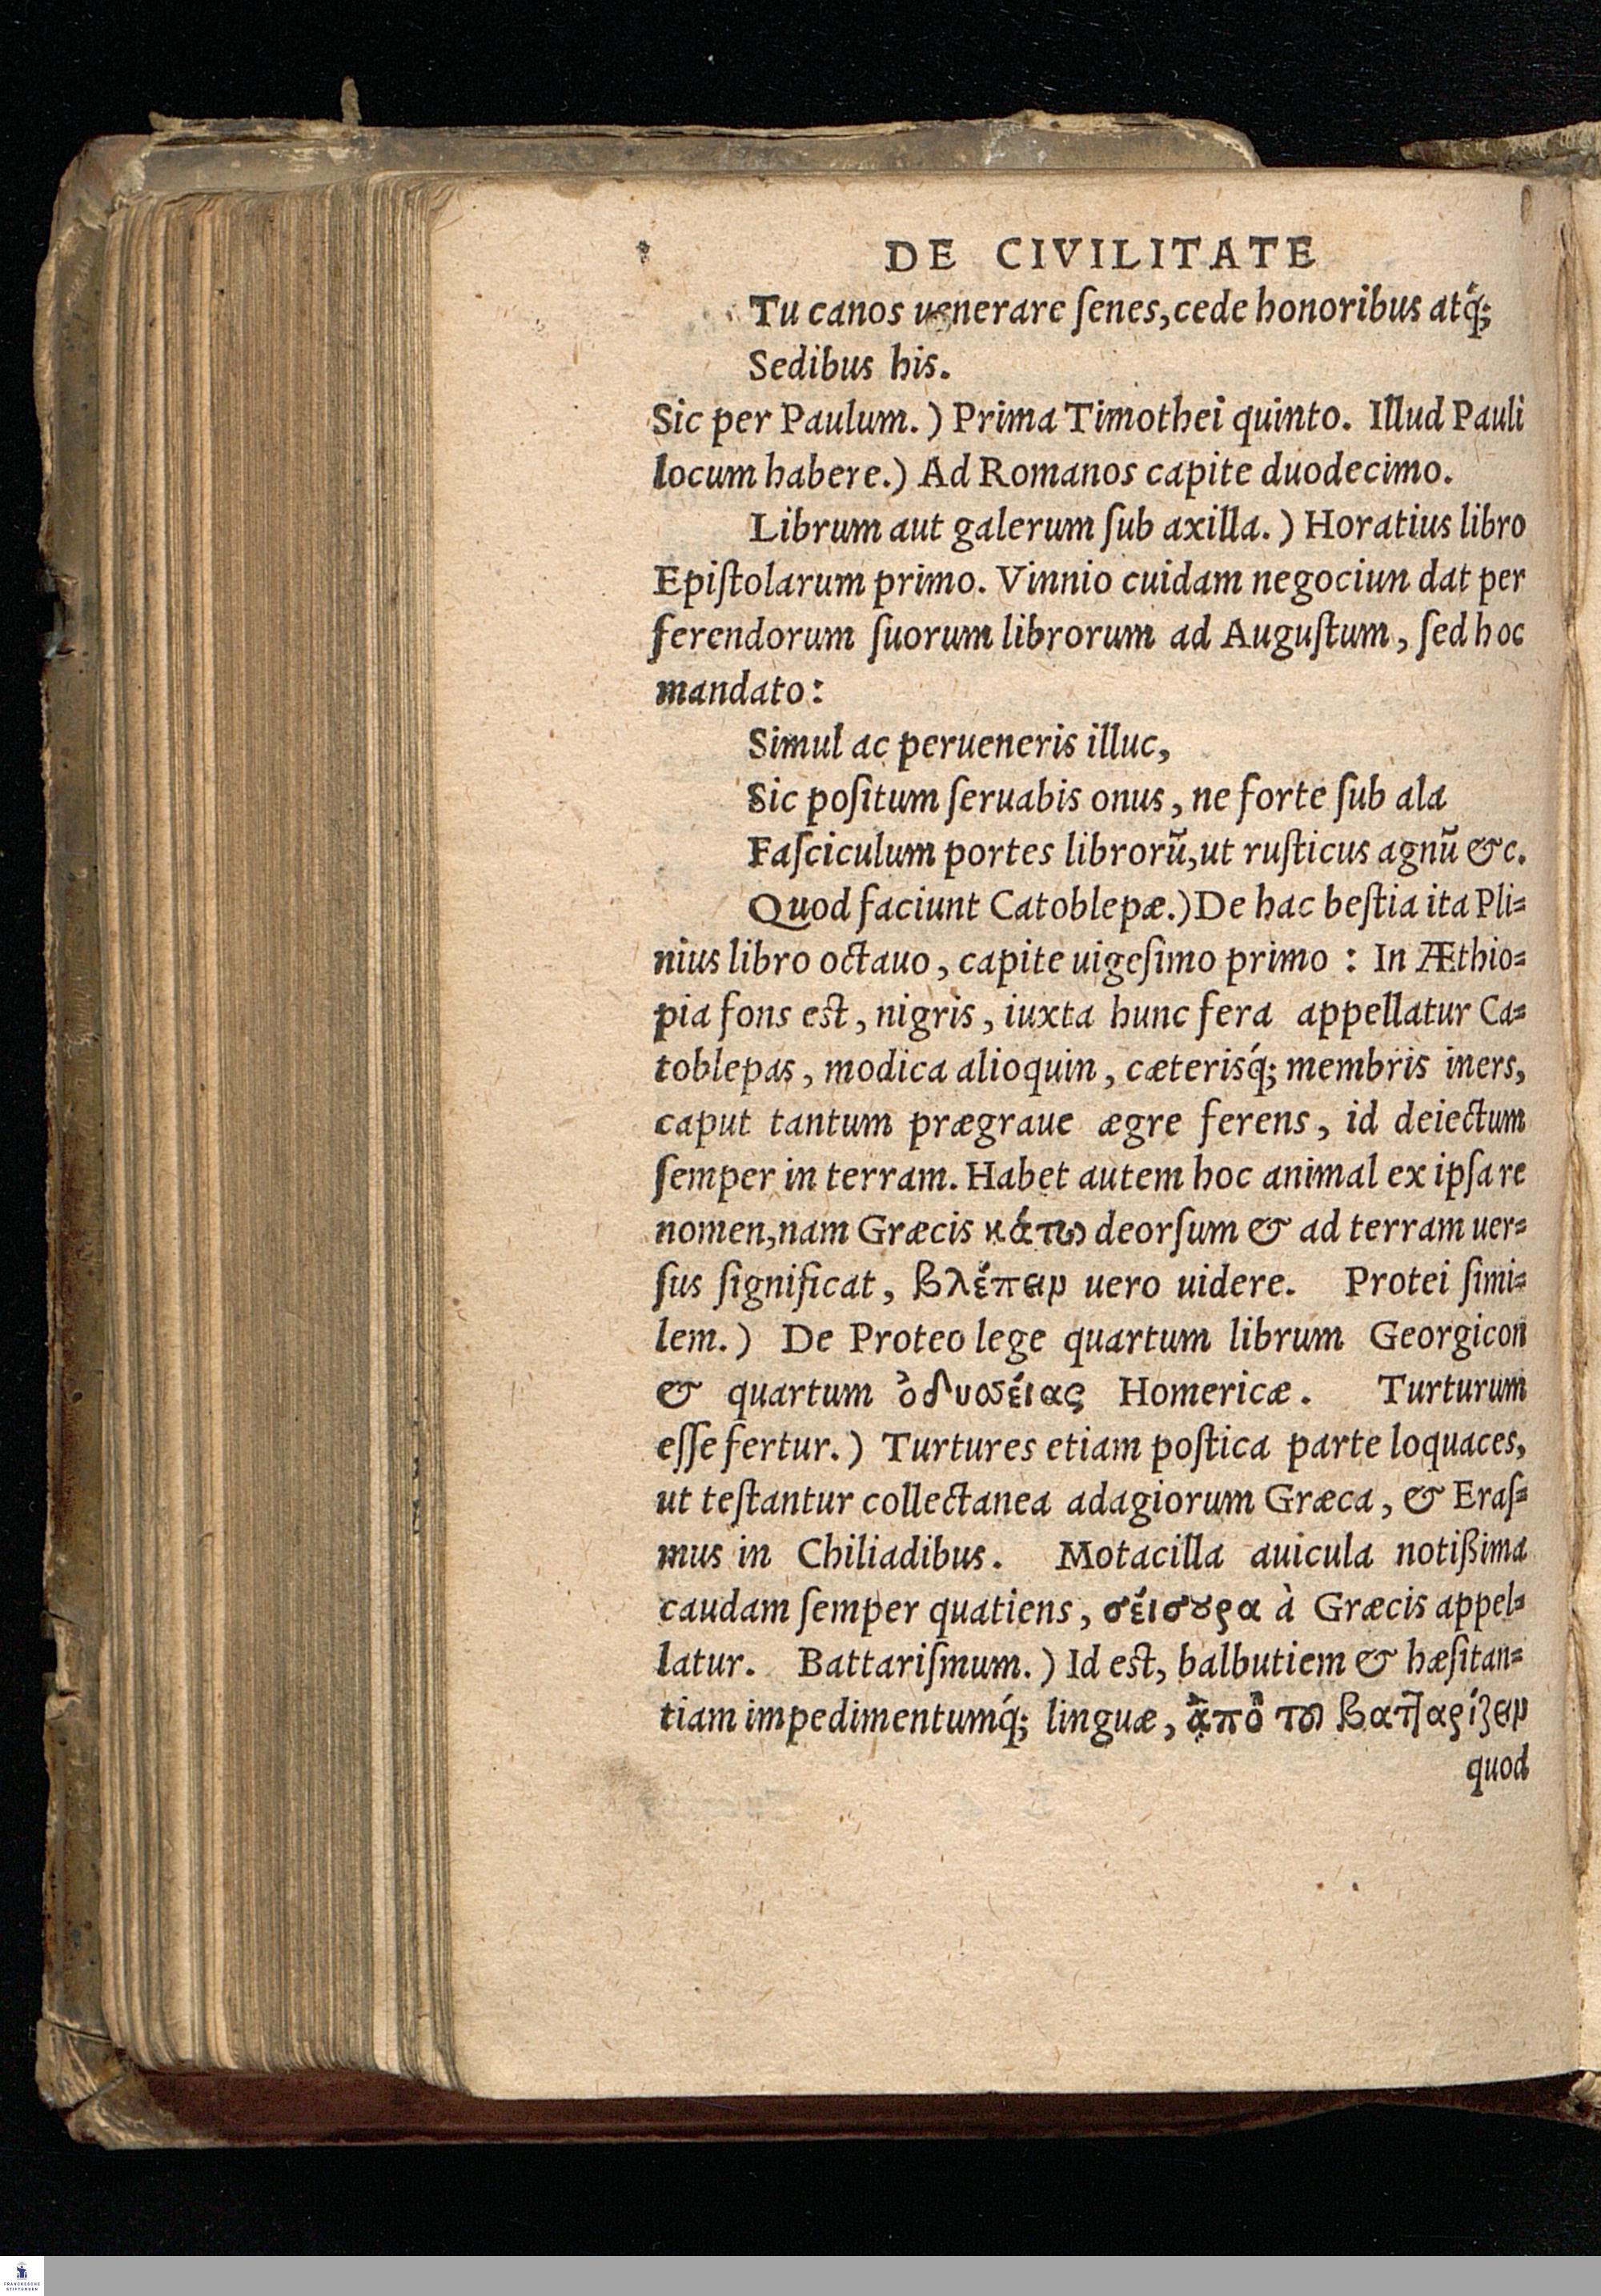 DE CIVILITATE
Tu canos uenerare ſenes, cede honoribus atq́;
Sedibus his.
Sic per Paulum.) Prima Timothei quinto. Illud Pauli
locum habere.) Ad Romanos capite duodecimo.
Librum aut galerum ſub axilla.) Horatius libro
Epiſtolarum primo. Vinnio cuidam negociun dat per
ferendorum ſuorum librorum ad Auguſtum, ſed hoc
mandato:
Simul ac perueneris illuc,
Sic poſitum ſeruabis onus, ne forte ſub ala
Faſciculum portes librorũ, ut ruſticus agnũ &c.
Quod faciunt Catoblepæ.) De hac beſtia ita Pli=
nius libro octauo, capite uigeſimo primo: In Æthio=
pia fons est, nigris, iuxta hunc fera appellatur Ca=
toblepas, modica alioquin, cæterisq́; membris iners,
caput tantum prægraue ægre ferens, id deiectum
ſemper in terram. Habet autem hoc animal ex ipſa re
nomen, nam Græcis κάτω deorſum & ad terram uer=
ſus ſignificat, βλέπειν uero uidere. Protei ſimi=
lem.) De Proteo lege quartum librum Georgicon
& quartum ὀδυσσείας Homericæ. Turturum
eſſe fertur.) Turtures etiam poſtica parte loquaces,
ut teſtantur collectanea adagiorum Græca, & Eraſ=
mus in Chiliadibus. Motacilla auicula notißima
caudam ſemper quatiens, σείσουρα à Græcis appel=
latur. Battariſmum.) Id est, balbutiem & hæſitan=
tiam impedimentumq́; linguæ, ἀπὸ τοῦ βατταρίζειν
quod
FRANCKESCHE
STIFTUNGEN